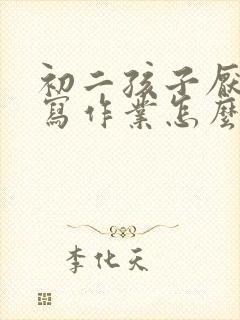 初二孩子厭
寫作業怎麼
李化天